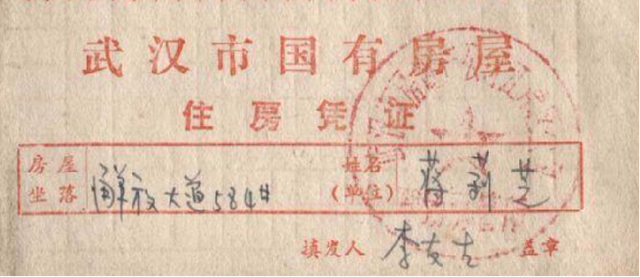 武汉市国有房屋
住房凭证
房屋坐落 解放大道584# 姓名(单位) 蒋莉芝
填发人 李友吉 盖章